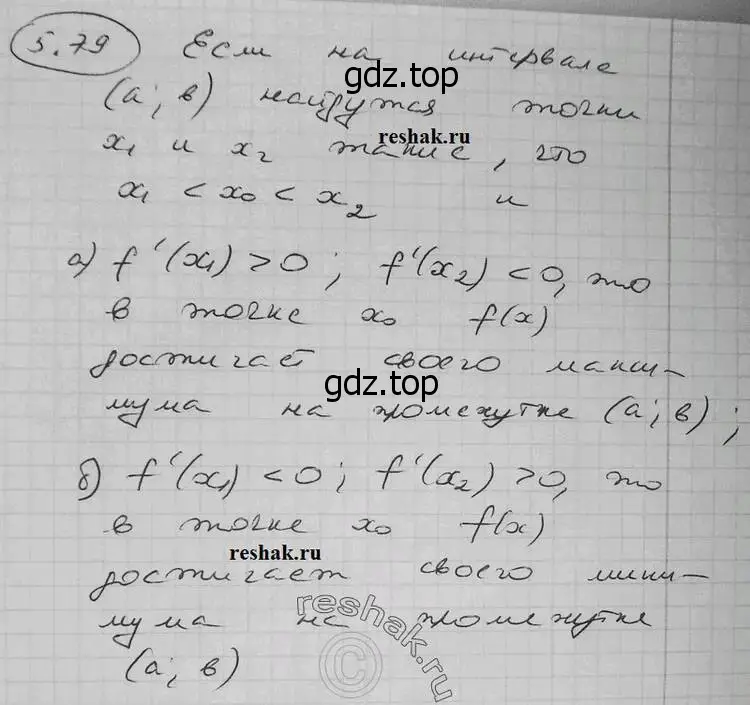 5.79 Если на интервале
gdz.top
(а; в) найдутся точки
reshak.ru
x₁ и x₂ такие, что
x₁ < x₀ < x₂ и
а) f'(x₁) > 0; f'(x₂) < 0, то
в точке x₀ f(x)
достигает своего макси-
gdz.top
мума на промежутке (а; в);
б) f'(x₁) < 0; f'(x₂) > 0, то
в точке x₀ f(x)
reshak.ru
достигает своего мини-
мума на промежутке
reshak.ru
©
(а; в)